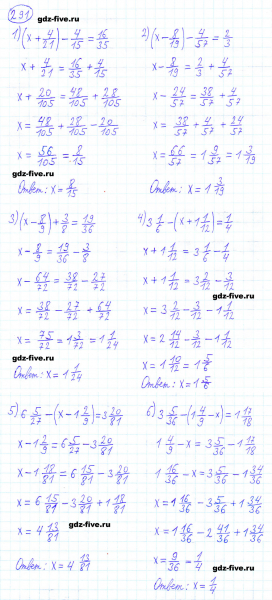 291
gdz-five.ru gdz-five.ru
1) (x + 4/21) - 4/15 = 16/35
x + 4/21 = 16/35 + 4/15
x + 20/105 = 48/105 + 28/105
x = 48/105 + 28/105 - 20/105
x = 56/105 = 8/15
gdz-five.ru
Ответ: x = 8/15
2) (x - 8/19) - 4/57 = 2/3
x - 8/19 = 2/3 + 4/57
x - 24/57 = 38/57 + 4/57
x = 38/57 + 4/57 + 24/57
x = 66/57 = 1 9/57 = 1 3/19
gdz-five.ru
Ответ: x = 1 3/19
3) (x - 8/9) + 3/8 = 19/36
x - 8/9 = 19/36 - 3/8
x - 64/72 = 38/72 - 27/72
x = 38/72 - 27/72 + 64/72
x = 75/72 = 1 3/72 = 1 1/24
gdz-five.ru
Ответ: x = 1 1/24
4) 3 1/6 - (x + 1 1/12) = 1/4
x + 1 1/12 = 3 1/6 - 1/4
x + 1 1/12 = 3 2/12 - 3/12
x = 3 2/12 - 3/12 - 1 1/12
x = 2 14/12 - 3/12 - 1 1/12
x = 1 10/12 = 1 5/6
gdz-five.ru
Ответ: x = 1 5/6
5) 6 5/27 - (x - 1 2/9) = 3 20/81
x - 1 2/9 = 6 5/27 - 3 20/81
x - 1 18/81 = 6 15/81 - 3 20/81
x = 6 15/81 - 3 20/81 + 1 18/81
x = 4 13/81
gdz-five.ru
Ответ: x = 4 13/81
6) 3 5/36 - (1 4/9 - x) = 1 17/18
1 4/9 - x = 3 5/36 - 1 17/18
1 16/36 - x = 3 5/36 - 1 34/36
x = 1 16/36 - 3 5/36 + 1 34/36
x = 1 16/36 - 2 41/36 + 1 34/36
x = 9/36 = 1/4
gdz-five.ru
Ответ: x = 1/4